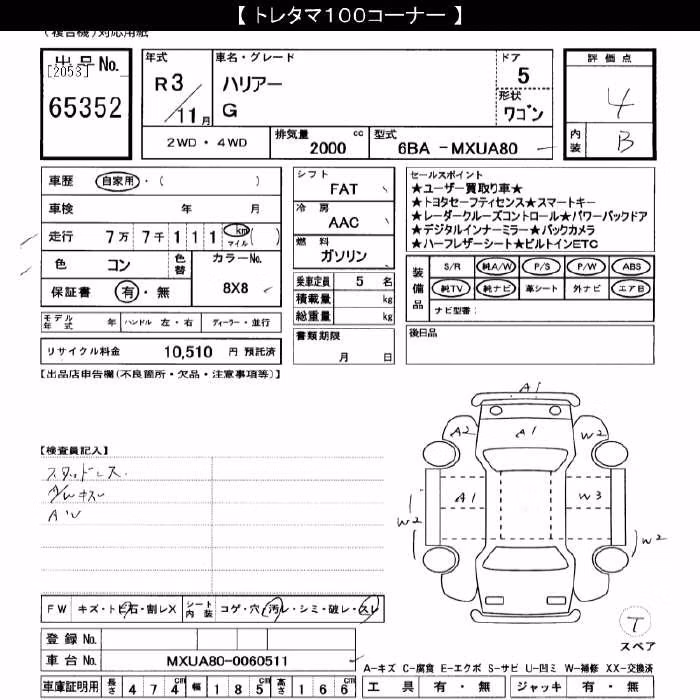 【 トレタマ100コーナー 】
(複合機)対応用紙
出品No.
[2053]
65352
年式
R3
11月
車名・グレード
ハリアー
G
ドア
5
形状
ワゴン
2WD・4WD
排気量 cc
2000
型式
6BA -MXUA80
評価点
4
内装
B
車歴 自家用・( )
車検 年 月
走行 7万7千111 km マイル ( )
色 コン
色替
カラーNo.
8X8
保証書 有・無
モデル年式 年 ハンドル 左・右 ディーラー・並行
リサイクル料金 10,510 円 預託済
シフト
FAT
冷房
AAC
燃料
ガソリン
乗車定員 5 名
積載量 kg
総重量 kg
書類期限
月 日
セールスポイント
★ユーザー買取り車★
★トヨタセーフティセンス★スマートキー
★レーダークルーズコントロール★パワーバックドア
★デジタルインナーミラー★バックカメラ
★ハーフレザーシート★ビルトインETC
装備品
S/R 純A/W P/S P/W ABS
純TV 純ナビ 革シート 外ナビ エアB
ナビ型番:
後日品
【出品店申告欄(不良箇所・欠品・注意事項等)】
【検査員記入】
スタッドレス.
A/Wキズ
A1
A2
A1
W2
A1
W3
W2
W2
T
スペア
FW キズ・トビ石・割レX
シート内装 コゲ・穴・汚レ・シミ・破レ・スレ
登録No.
車台No. MXUA80-0060511
車庫証明用 長さ 474cm 幅 185cm 高さ 166cm
A-キズ C-腐食 E-エクボ S-サビ U-凹ミ W-補修 XX-交換済
工具 有・無 ジャッキ 有・無